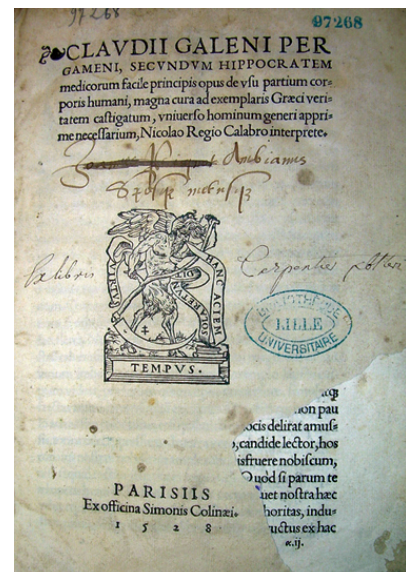 97268
97268
CLAVDII GALENI PER
GAMENI, SECVNDVM HIPPOCRATEM
medicorum facile principis opus de vsu partium cor=
poris humani, magna cura ad exemplaris Græci veri=
tatem castigatum, vniuerso hominum generi appri=
me necessarium, Nicolao Regio Calabro interprete.
Ambianus
Ex libris Carpentier
VIRTVS
HANC ACIEM
TEMPVS.
BIBLIOTHÈQUE
LILLE
UNIVERSITAIRE
non pau
ocis delirat amus=
, candide lector, hos
isfruere nobiscum,
Quòd si parum te
uet nostra hæc
horitas, indu=
uctus ex hac
α.ij.
PARISIIS
Ex officina Simonis Colinæi.
1528